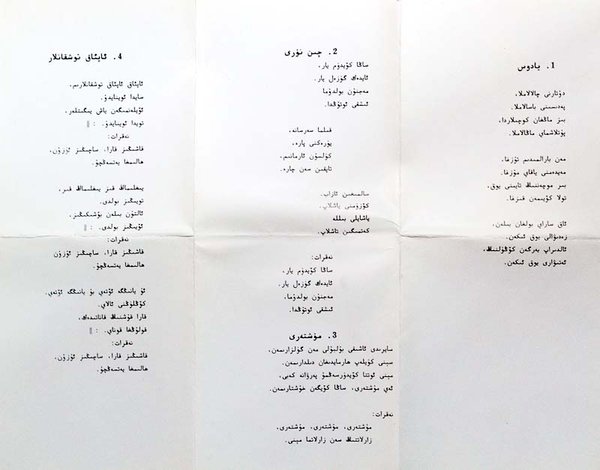 1. پادوس
دۇتارنى چالالاملا،
پەدىسىنى باسالاملا.
بىز ماڭغان كوچىلاردا،
پۇتلاشماي ماڭالاملا.
مەن يارالمىدىم ئۇزغا،
مەيدەمنى ياقاي مۇزغا.
بىر موچەننىڭ تايىنى يوق،
تولا كۆيىمەن قىزغا.
ئاق ساراي بولغان بىلەن،
يوق ئىكەن.
ئالدىراپ بەرگەن كۆڭۈلنىڭ،
ئەتىۋارى يوق ئىكەن.
2. چىن نۇرى
ساڭا كۆيدۈم يار،
ئايدەك گۈزەل يار.
مەجنۇن بولدۇما
ئىشقى ئوتۇڭدا.
قىلما سەرسانە،
يۈرەكنى پارە.
كۆلسۇن ئارمانىم،
تاپقىن سەن چارە.
سالمىغىن ئازاب،
كۆزۈمنى ياشلاپ.
ياشايلى بىللە
كەتمىگىن تاشلاپ.
نەقرات:
ساڭا كۆيدۈم يار،
ئايدەك گۈزەل يار.
مەجنۇن بولدۇما،
ئىشقى ئوتۇڭدا.
3. مۇشتەرى
سايرىدى ئاشىقى بۇلبۇلى مەن گۈلزارىمەن.
مېنى كۈيلەپ ھارمايدىغان دىلدارىمەن.
مېنى ئوتتا كۆيدۈرسەڭمۇ پەرۋانە كەبى،
ئەي مۇشتەرى، ساڭا كۆيگەن خۇشتارىمەن.
نەقرات:
مۇشتەرى، مۇشتەرى، مۇشتەرى،
زارلاتتىڭ سەن زارلاتما مېنى.
4. ئاپئاق توشقانلار
ئاپئاق ئاپئاق توشقانلارىم،
سايدا ئوينايدۇ.
ئۆيلەنمىگەن ياش يىگىتلەر،
تويدا ئوينايدۇ. :‖
نەقرات:
قاشىڭىز قارا، ساچىڭىز ئۇزۇن،
ھالىمغا يەتسەڭچۇ.
يىغلىماڭ قىز، يىغلىماڭ قىز،
تويىڭىز بولدى.
ئالتۇن بىلەن
ئۆيىڭىز بولدى. :‖
نەقرات:
قاشىڭىز قارا، ساچىڭىز ئۇزۇن
ھالىمغا يەتسەڭچۇ.
ئۇ ياننىڭگە ئۆتەي بۇ ياننىڭگە ئۆتەي.
كۆڭلۈڭنى ئالاي.
قارا قۇشنىڭ قاناتىدەك،
قولۇڭغا قوناي. :‖
نەقرات:
قاشىڭىز قارا، ساچىڭىز ئۇزۇن،
ھالىمغا يەتسەڭچۇ.